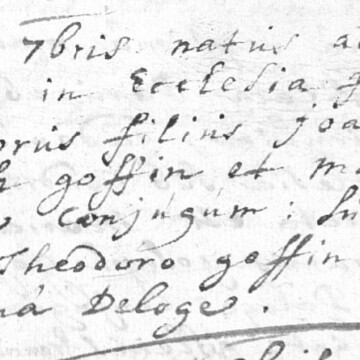 7bris natus a
in Ecclesia
orus filius joa
goffin et ma
conjugum : Su
Theodoro goffin
na Deloge .